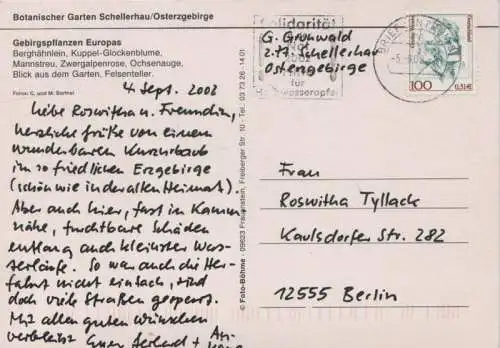 Botanischer Garten Schellerhau/Osterzgebirge
Gebirgspflanzen Europas
Berghähnlein, Kuppel-Glockenblume,
Mannstreu, Zwergalpenrose, Ochsenauge,
Blick aus dem Garten, Felsenteller.
Fotos: C. und M. Barthel
4. Sept. 2002
Liebe Roswitha u. Freundin,
herzliche Grüße von einem
wunderbaren Kurzurlaub
im so friedlichen Erzgebirge
(schön wie in der alten Heimat).
Aber auch hier, fast in Kamm
nähe, furchtbare Schäden
entlang auch kleinster Was-
serläufe. So war auch die Her-
fahrt nicht einfach, sind
doch viele Straßen gesperrt.
Mit allen guten Wünschen
verbleibt Euer Gerhard +
© Foto-Böhme - 09623 Frauenstein, Freiberger Str. 10 - Tel. 03 73 26 - 14 01
Solidarität
für
Hochwasseropfer
G. Grunwald
z.Zt. Schellerhau
Osterzgebirge
BRIEFZENTRUM
100
0,51 €
Frau
Roswitha Tyllack
Kaulsdorfer Str. 282
12555 Berlin